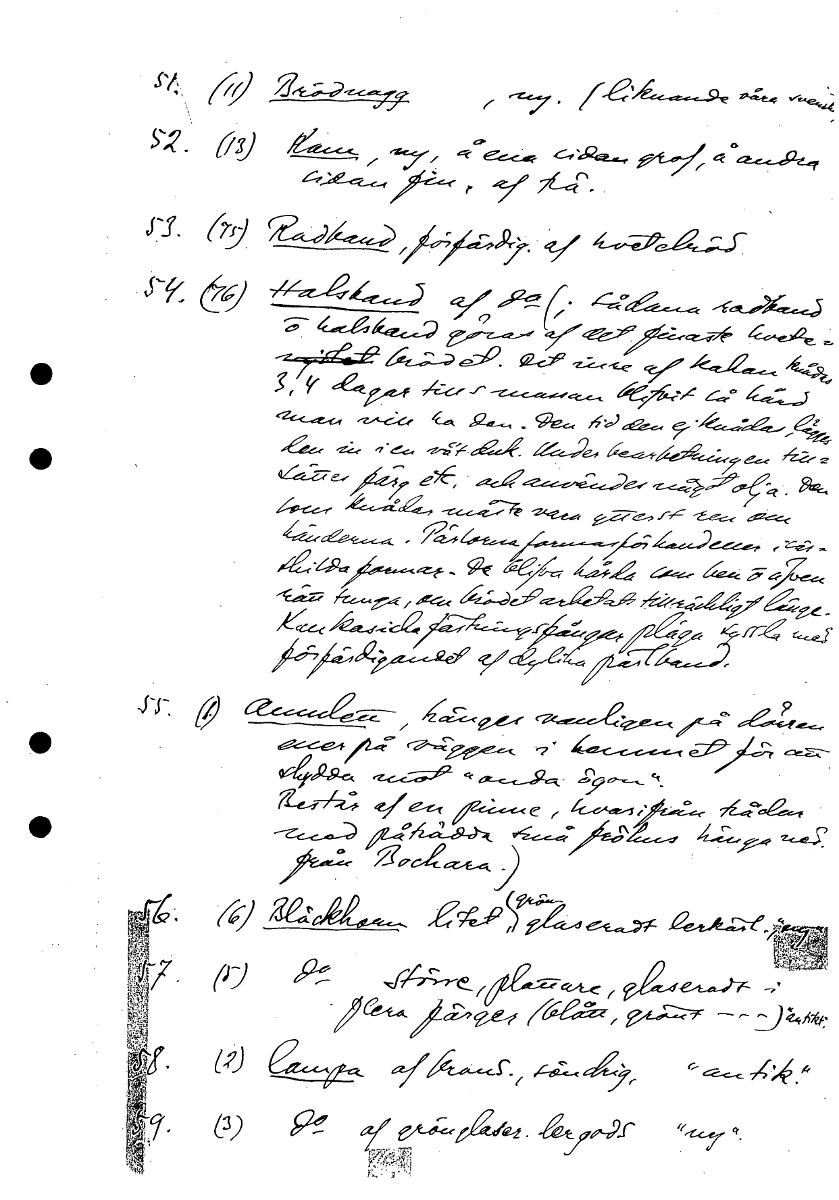 51. (11) Brödnagg , ny. (liknande våra svensk.
52. (13) Kam, ny, å ena sidan grof, å andra
sidan fin, af trä.
53. (75) Radband, förfärdig. af hvetebröd
54. (76) Halsband af do (; sådana radband
o halsband göras af det finaste hvete=
brödet. Det inre af kakan knådas
3, 4 dagar tills massan blifvit så hård
man vill ha den. Den tid den ej knådas, lägges
den in i en våt duk. Under bearbetningen till=
sättes färg etc, och användes något olja. Den
som knådar måste vara ytterst ren om
händerna. Pärlorna formas för händerna i sär-
skilda formar. De blifva hårda som ben o äfven
rätt tunga, om brödet arbetats tillräckligt länge.
Kaukasiska fästningsfångar pläga syssla med
förfärdigandet af dylika pärlband.
55. (1) Amulett, hänges vanligen på dörren
eller på väggen i hemmet för att
skydda mot "onda ögon".
Består af en pinne, hvarifrån trådar
med påträdda små fröhus hänga ned.
från Bochara.)
56. (6) Bläckhorn litet, (grön) glaseradt lerkärl. "ny"
57. (5) do större, plattare, glaseradt i
flera färger (blått, grönt ---) "antikt"
58. (2) Lampa af brons., söndrig, "antik."
59. (3) do af grönglaser. lergods "ny".